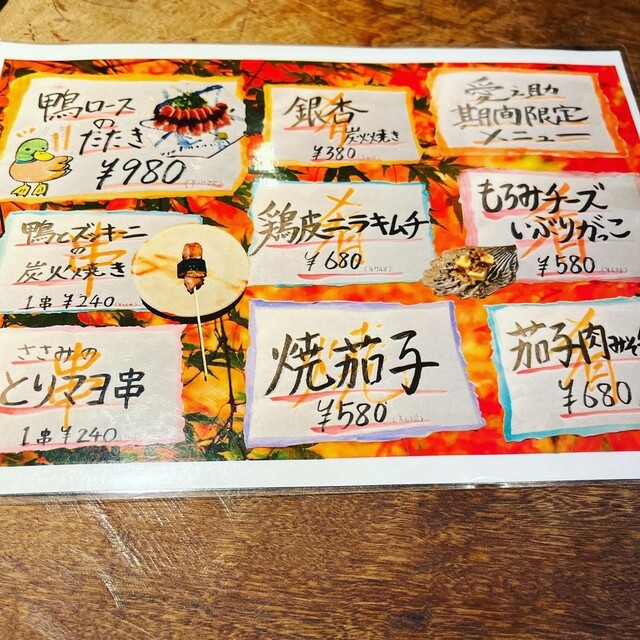 鴨ロース
の
たたき
¥980
銀杏
炭火焼き
¥380
愛之助
期間限定
メニュー
鴨とズッキーニ
の
炭火焼き
1串 ¥240
鶏皮ニラキムチ
¥680
(¥748)
もろみチーズ
いぶりがっこ
¥580
(¥638)
ささみの
とりマヨ串
1串 ¥240
焼茄子
¥580
(¥638)
茄子肉みそ
¥680